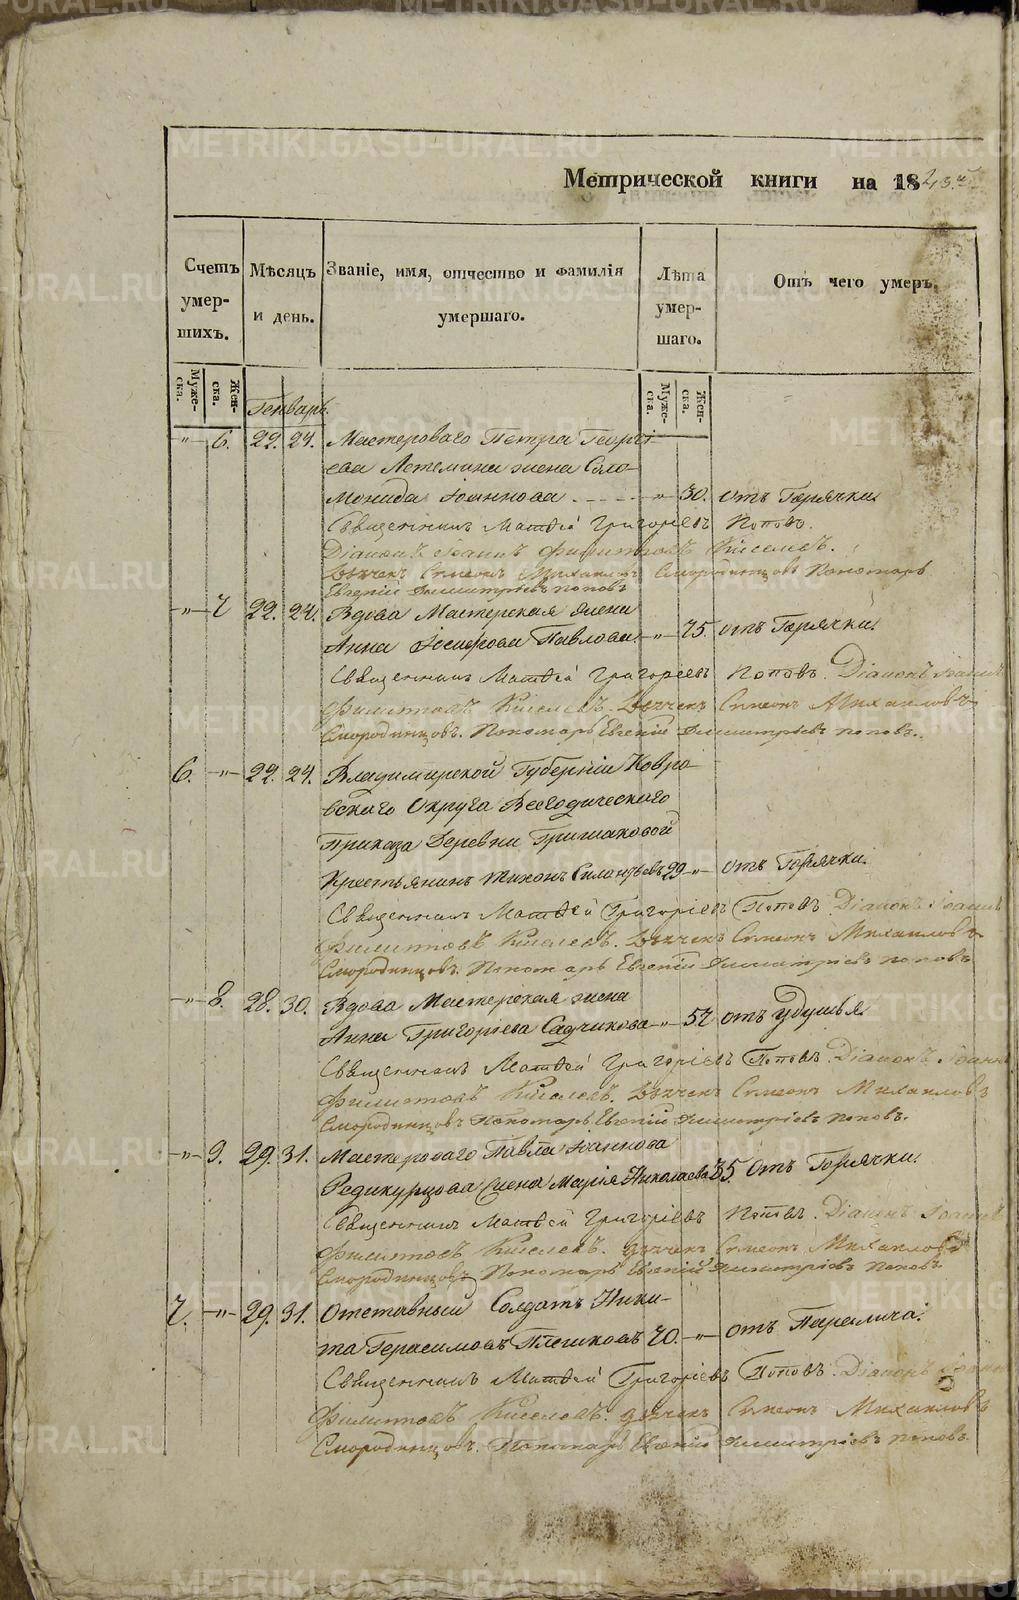 Метрической книги на 1843 г.
Счетъ умер-шихъ.
Мѣсяцъ и день.
Званіе, имя, отчество и фамилія умершаго.
Лѣта умер-шаго.
Отъ чего умеръ.
Муже-ска.
Жен-ска.
Генварь
Муже-ска.
Жен-ска.
"— 6. 22. 24. Мастероваго Петра Георгі-
ева жена Соло-
монида Іоаннова — " — 30. отъ Горячки.
Священникъ Матѳей Григоріевъ Поповъ.
Діаконъ Іоаннъ Филиповъ Киселевъ.
Дьячекъ Симеонъ Михаиловъ Смородинцовъ Пономарь
Евгеній Димитріевъ поповъ
"— 7 22. 24. Вдова Мастерская жена
Анна Іосифова Павлова — " — 75. отъ Горячки.
Священникъ Матѳей Григоріевъ Поповъ. Діаконъ Іоаннъ
Филиповъ Киселевъ. Дьячекъ Симеонъ Михаиловъ
Смородинцовъ. Пономарь Евгеній Димитріевъ поповъ.
6. —"— 22. 24. Владимирской Губерніи Ковро-
вскаго Округа Всегодическаго
Приказа Деревни Гришаковой
Крестьянинъ Тихонъ Силантьевъ 29 —"— отъ Горячки.
Священникъ Матѳей Григоріевъ Поповъ. Діаконъ Іоаннъ
Филиповъ Киселевъ. Дьячекъ Симеонъ Михаиловъ
Смородинцовъ. Пономарь Евгеній Димитріевъ поповъ
—"— 8. 28. 30. Вдова Мастерская жена
Анна Григоріева Садчикова —"— 57 отъ удушья.
Священникъ Матѳей Григоріевъ Поповъ. Діаконъ Іоаннъ
Филиповъ Киселевъ. Дьячекъ Симеонъ Михаиловъ
Смородинцовъ Пономарь Евгеній Димитріевъ поповъ.
—"— 9. 29. 31. Мастероваго Павла Іоаннова
Редикурцова жена Марія Николаева 35. Отъ Горячки.
Священникъ Матѳей Григоріевъ Поповъ. Діаконъ Іоаннъ
Филиповъ Киселевъ. Дьячекъ Симеонъ Михаиловъ
Смородинцовъ Пономарь Евгеній Димитріевъ поповъ
7. —"— 29. 31. Отставный Солдатъ Ники-
та Герасимовъ Плешковъ 70. —"— отъ Паралича.
Священникъ Матѳей Григоріевъ Поповъ. Діаконъ Іоаннъ
Филиповъ Киселевъ. Дьячекъ Симеонъ Михаиловъ
Смородинцовъ. Пономарь Евгеній Димитріевъ поповъ.
METRIKI.GASO-URAL.RU